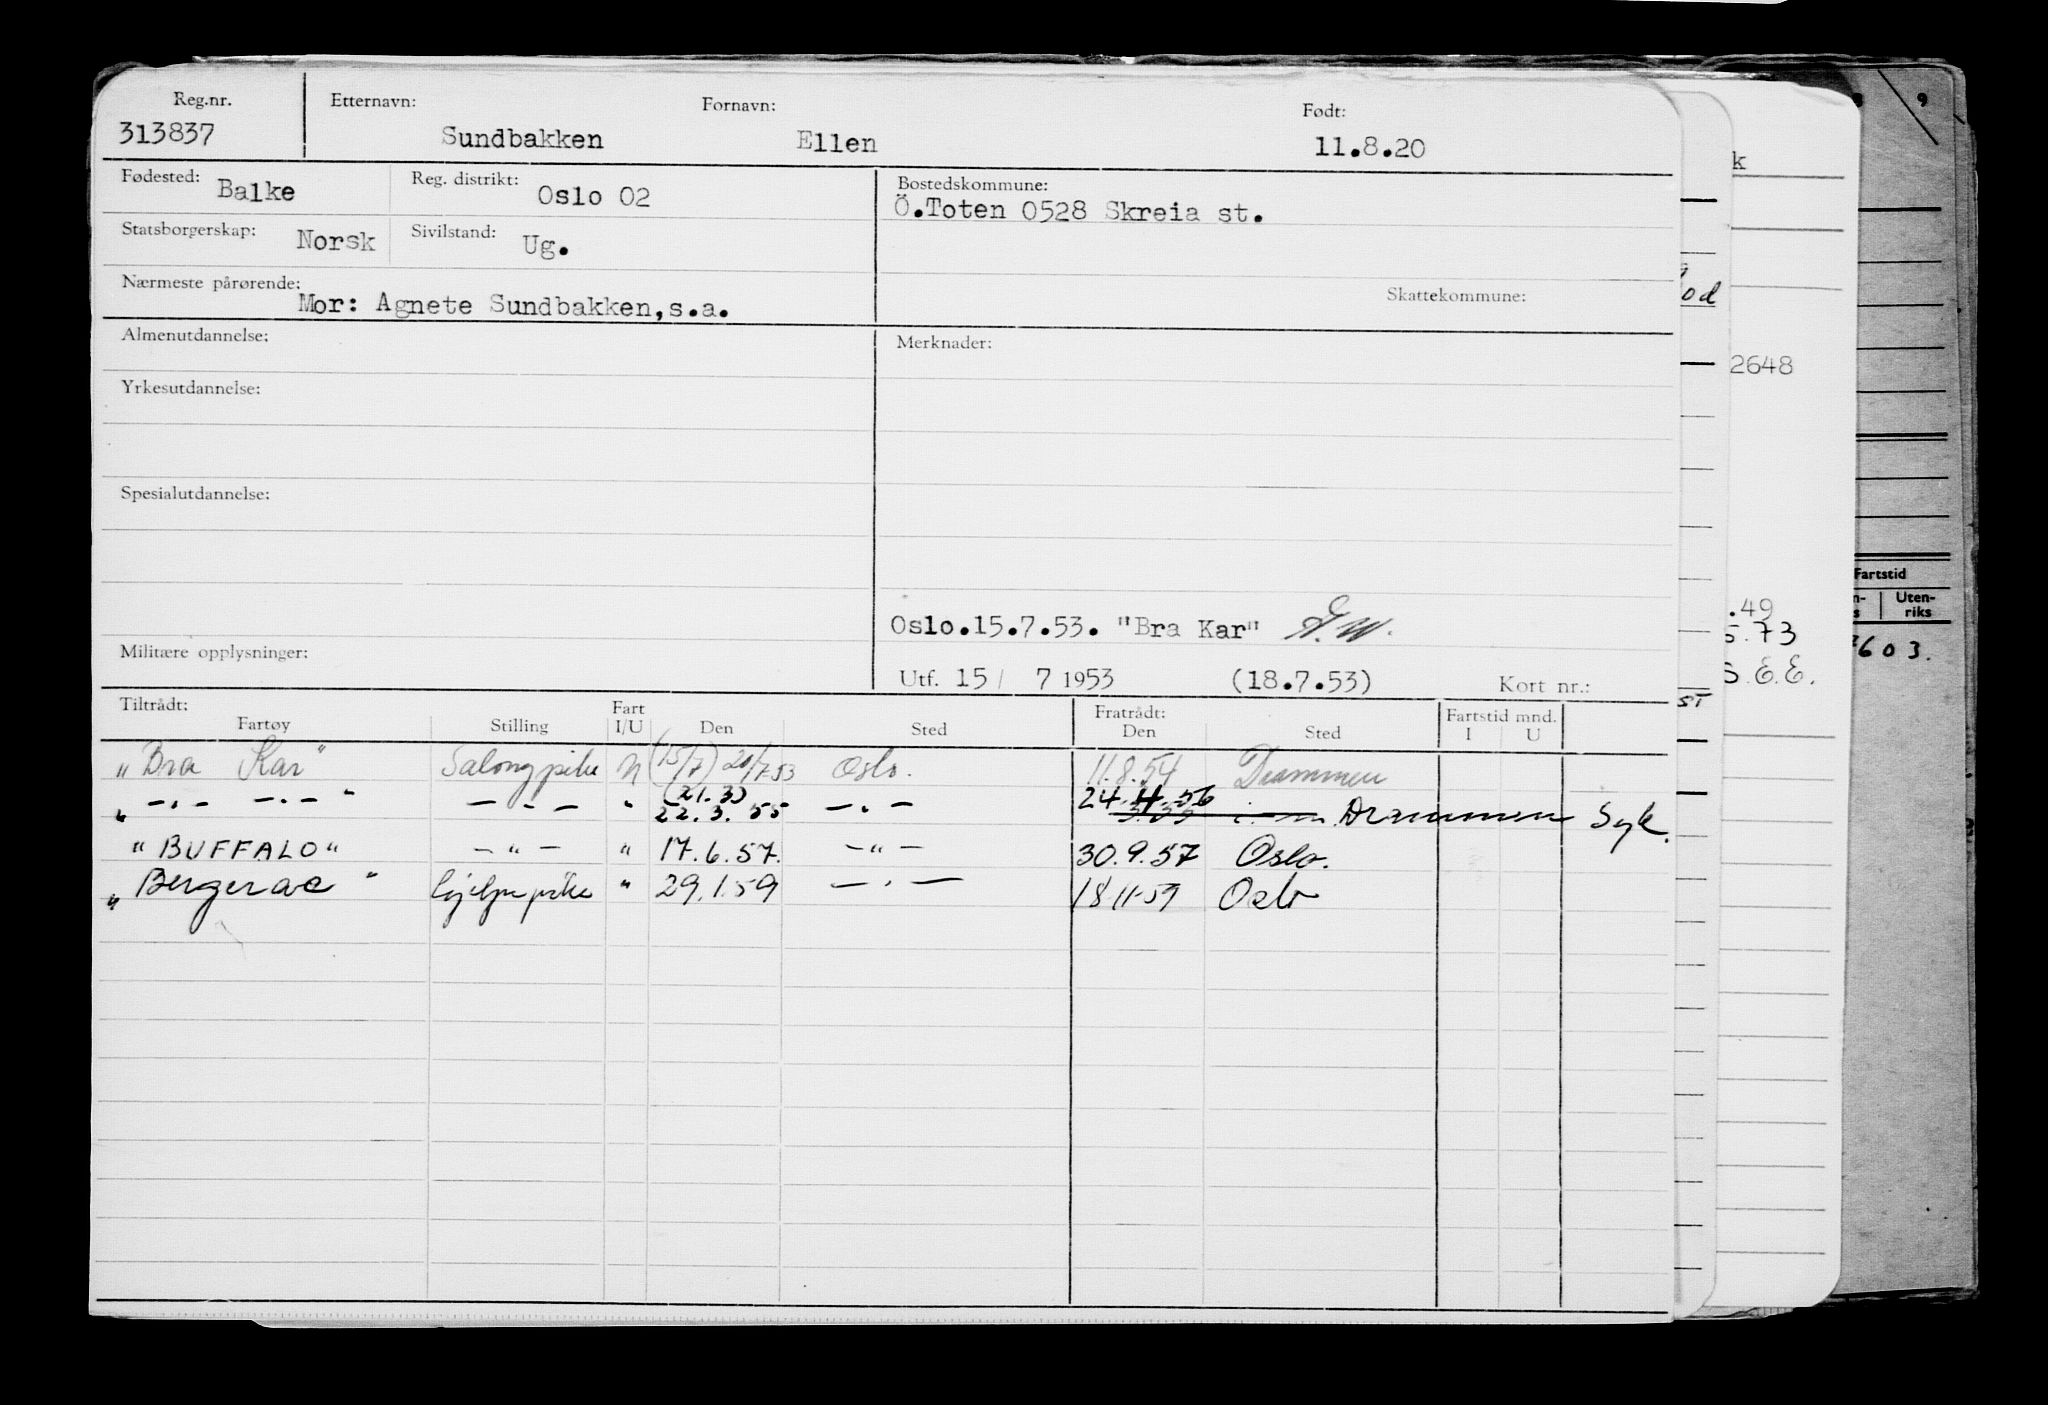 Reg.nr. Etternavn: Fornavn: Født:
313837 Sundbakken Ellen 11.8.20
Fødested: Balke Reg. distrikt: Oslo 02 Bostedskommune:
Ö.Toten 0528 Skreia st.
Statsborgerskap: Norsk Sivilstand: Ug.
Nærmeste pårørende: Skattekommune:
Mor: Agnete Sundbakken,s.a.
Almenutdannelse: Merknader:
Yrkesutdannelse:
Spesialutdannelse:
Oslo.15.7.53. "Bra Kar"
Militære opplysninger:
Utf. 15/ 7 1953 (18.7.53) Kort nr.:
Tiltrådt: Fart Fratrådt: Fartstid mnd.
Fartøy Stilling I/U Den Sted Den Sted I U
„Bra Kar" Salongpike U (15/7) 20/7.53 Oslo. 11.8.54 Drammen
(21.3)
„ — . — — . — " — - — " 22.3.55 — . — 24.4.56 Drammen Syk.
"BUFFALO" — " — " 17.6.57. — " — 30.9.57 Oslo.
„Bergerac" hjelpepike " 29.1.59 — . — 18 11-59 Oslo
k
od
2648
.49
5.73
S.E.E.
ST
8 9
Fartstid
n- Uten-
s riks
603.